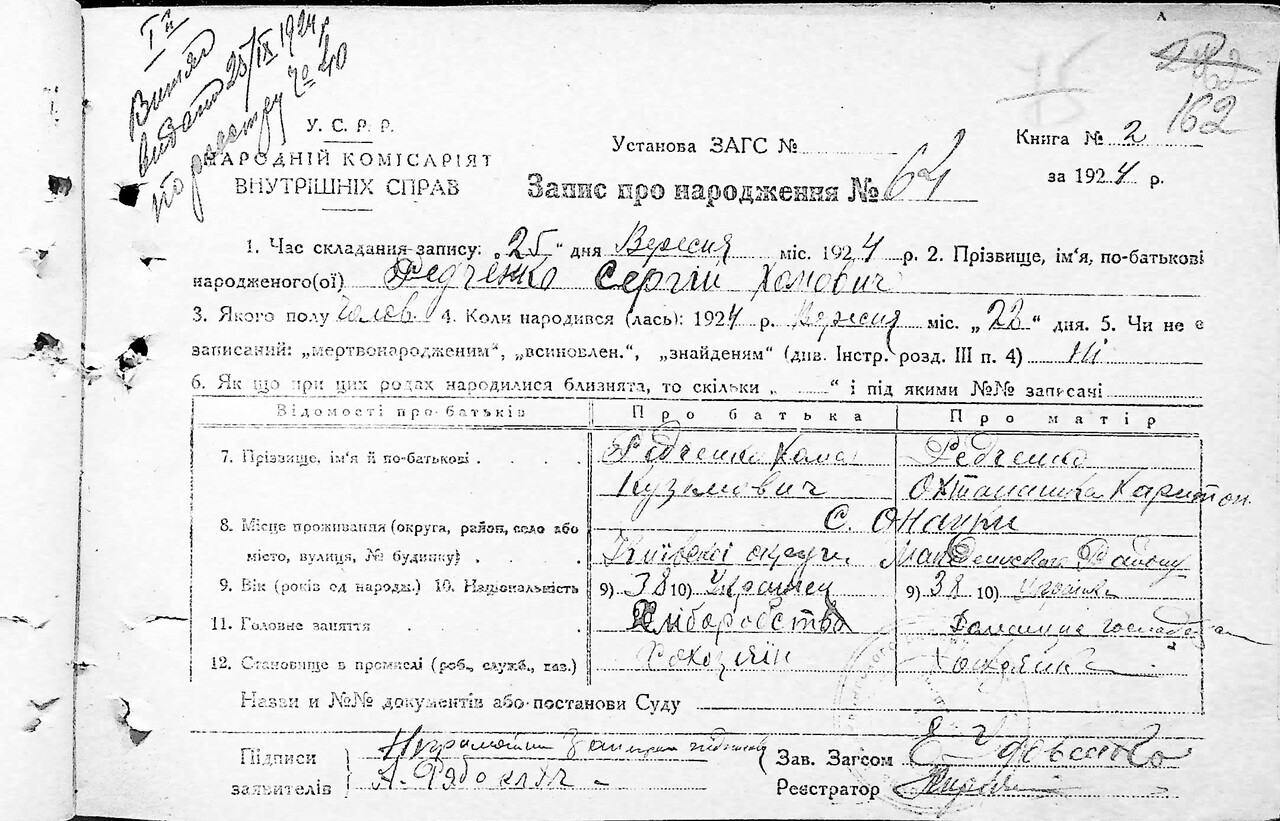 Iй
Витяг
видано 25/IX 1924 р
по реєстру № 40
162
У. С. Р. Р.
НАРОДНІЙ КОМІСАРІЯТ
ВНУТРІШНІХ СПРАВ
Установа ЗАГС №
Книга № 2
за 1924 р.
Запис про народження № 64
1. Час складання запису: „25“ дня Вересня міс. 1924 р. 2. Прізвище, ім‘я, по-батькові
народженого(ої) Редченко Сергій Хомович
3. Якого полу чолов. 4. Коли народився (лась): 1924 р. Вересня міс. „22“ дня. 5. Чи не є
записаний: „мертвонародженим“, „всиновлен.“, „знайденям“ (див. Інстр. розд. III п. 4) Ні
6. Як що при цих родах народилися близнята, то скільки „ “ і під якими №№ записані
Відомості про батьків Про батька Про матір
7. Прізвище, ім‘я й по-батькові Редченко Хома Редченко
Кузьмович Харитон.
8. Місце проживання (округа, район, село або с. Онацки
місто, вулиця, № будинку) Київської округи Району
9. Вік (років од народж.) 10. Національність 9) 38 10) Українец 9) 38 10) Українка
11. Головне заняття Хліборобство Домашне господар
12. Становище в промислі (роб., служ., хаз.) Хазяїн
Назви и №№ документів або постанови Суду
Підписи
заявителів
Неграмотний
А. Рябо
Зав. Загсом
Реєстратор